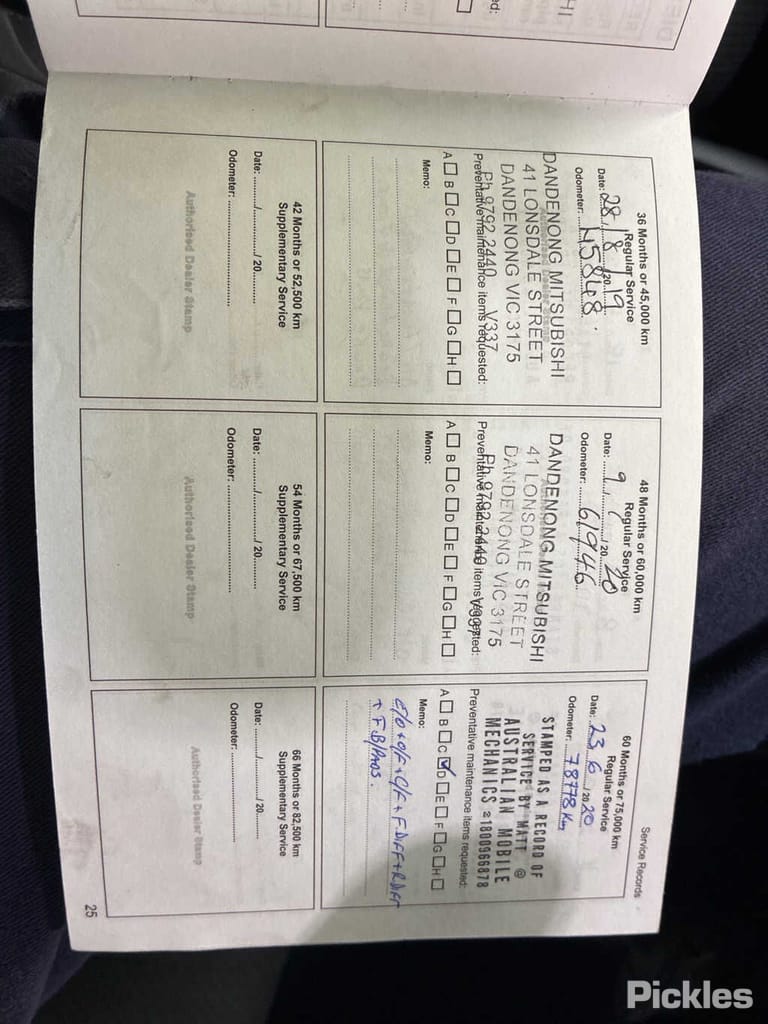 Service Records
36 Months or 45,000 km
Regular Service
Date: 28 / 8 / 20 19
Odometer: 45848.
DANDENONG MITSUBISHI
41 LONSDALE STREET
DANDENONG VIC 3175
Ph 9792 2440 V337
Preventative maintenance items requested:
A B C D E F G H
Memo:
48 Months or 60,000 km
Regular Service
Date: 9 / / 20 20
Odometer: 61946
DANDENONG MITSUBISHI
41 LONSDALE STREET
DANDENONG VIC 3175
Ph 9792 2440 V337
Preventative maintenance items requested:
A B C D E F G H
Memo:
60 Months or 75,000 km
Regular Service
Date: 23 / 6 / 20 20
Odometer: 78778 Km
STAMPED AS A RECORD OF
SERVICE BY MATT @
AUSTRALIAN MOBILE
MECHANICS 1800966878
Preventative maintenance items requested:
A B C D E F G H
Memo:
E/O + O/F + C/F + F.DIFF + R.DIFF
↑ F. B/PADS.
42 Months or 52,500 km
Supplementary Service
Date: / / 20
Odometer:
Authorised Dealer Stamp
54 Months or 67,500 km
Supplementary Service
Date: / / 20
Odometer:
Authorised Dealer Stamp
66 Months or 82,500 km
Supplementary Service
Date: / / 20
Odometer:
Authorised Dealer Stamp
25
Pickles